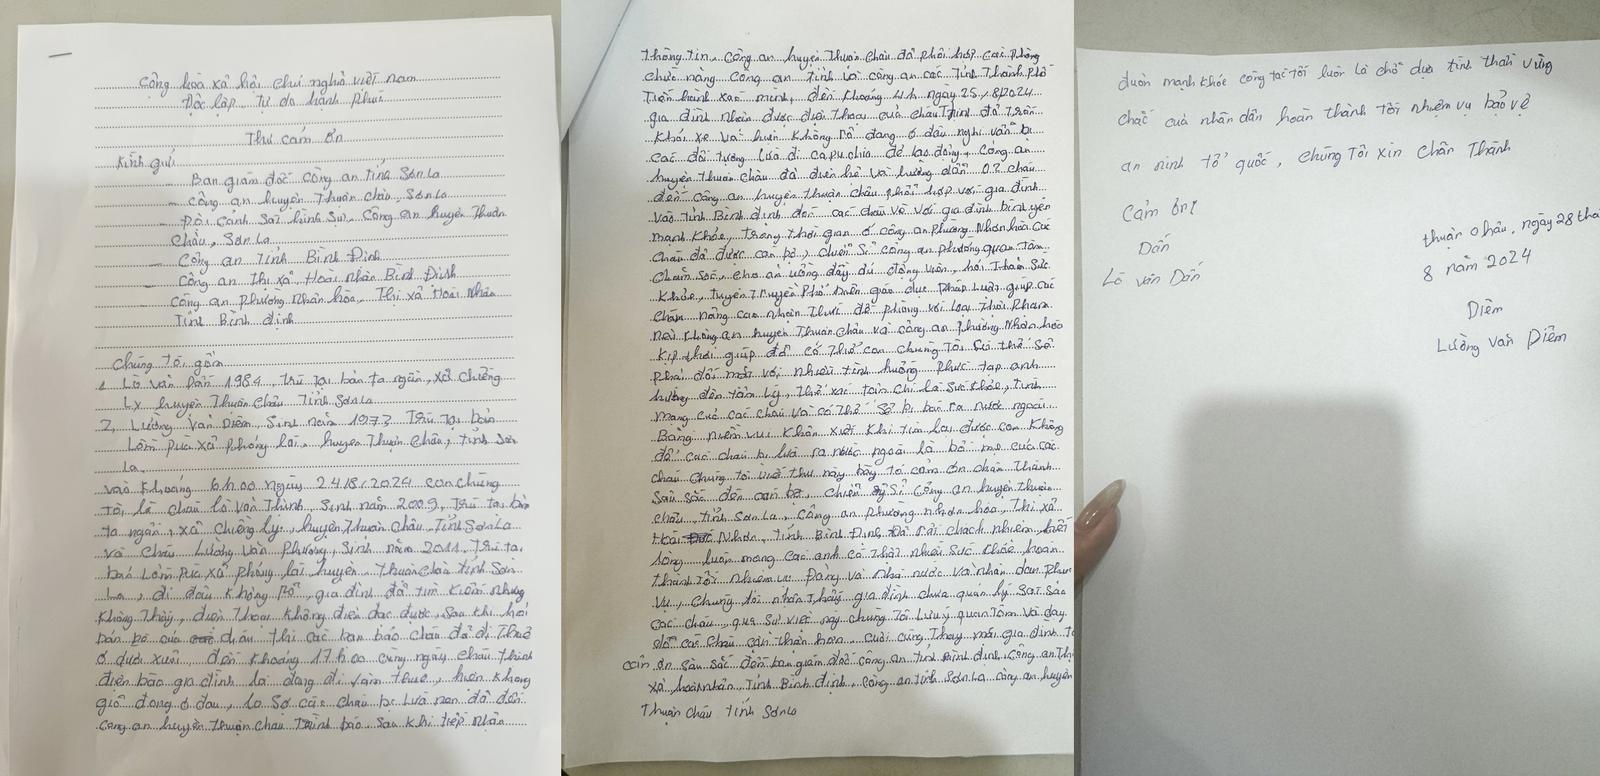 Cộng hòa xã hội chủ nghĩa việt nam
Độc lập, tự do hạnh phúc
Thư cảm ơn
Kính gửi
- Ban giám đốc công an tỉnh Sơn La
- công an huyện Thuận châu, Sơn La
- Đội cảnh sát hình sự, công an huyện Thuận
Châu, Sơn La,
- công an Tỉnh Bình Định
- công an Thị xã Hoài nhơn Bình Định
công an phường Nhơn hòa, Thị xã Hoài Nhơn
Tỉnh Bình định
Chúng tôi gồm
1, Lò văn Dấn 1984, trú tại bản ta ngần, xã chiềng
Ly huyện Thuận châu Tỉnh Sơn La
2, Lường văn Diêm, Sinh năm 1973 Trú Tại bản
Lốm pưa xã phỏng lái, huyện Thuận châu, tỉnh Sơn
La,
vào khoảng 6h00 ngày 24/8/2024 con chúng
tôi, là cháu lò văn Thình, Sinh năm 2009, Trú tại bản
ta ngần, xã chiềng ly, huyện Thuận châu, Tỉnh Sơn La
và cháu Lường văn phương, Sinh năm 2011, Trú tại
bản Lốm pưa xã phỏng lái huyện Thuận châu tỉnh Sơn
La, đi đâu không rõ, gia đình đã tìm kiếm nhưng
không Thấy, điện Thoại không điện đạc được, Sau khi hỏi
bạn bè của cháu thì các bạn bảo cháu đã đi Thuê
ở dưới xuôi, đến khoảng 17h00 cùng ngày cháu Thình
điện báo gia đình là đang đi làm thuê, hiện không
giõ đang ở đâu, lo Sợ các cháu bị Lừa nên đã đến
công an huyện Thuận châu Trình báo, Sau khi tiếp nhận
Thông tin, công an huyện Thuận châu đã phối hợp các phòng
chức năng công an tỉnh và công an các tỉnh Thành phố
Tiến hành xác minh, đến khoảng 4h ngày 25/8/2024
gia đình nhận được điện thoại của cháu Thình đã Trốn
khỏi xe và hiện không rõ đang ở đâu nghi vấn bị
các đối tượng lừa đi campuchia để lao động, công an
huyện Thuận châu đã liên hệ và hướng dẫn 02 cháu
đến công an huyện Thuận châu phối hợp với gia đình
vào tỉnh Bình định đón các cháu về với gia đình bình yên
mạnh khỏe, trong thời gian ở công an phường Nhơn hòa các
cháu đã được cán bộ, chiến Sĩ công an phường quan tâm
chăm sóc, cho ăn uống đầy đủ động viên, hỏi Thăm Sức
khỏe, tuyên Truyền phổ biến giáo dục pháp Luật giúp các
cháu nâng cao nhận Thức để phòng với loại Thôi phạm
này công an huyện Thuận châu và công an phường Nhơn hòa
kịp thời giúp đỡ có Thể con chúng Tôi Sẽ thể Sẽ
phải đối mặt với nhiều tình huống phức tạp ảnh
hưởng đến tâm lý, thể xác toàn chí là Sức khỏe, tính
mạng của các cháu và có thể Sẽ bị bán ra nước ngoài
Bằng niềm vui khôn xiết khi tìm lại được con không
để các cháu bị lừa ra nước ngoài là bố mẹ của các
cháu chúng tôi viết thư này bày tỏ cảm ơn chân Thành
Sâu sắc đến cán bộ, chiến Sĩ công an huyện thuận
châu, tỉnh Sơn La, công an phường nhơn hòa, Thị xã
Hoài Nhơn, Tỉnh Bình Định đã trách nhiệm, hết
lòng, luôn mong các anh có Thật nhiều Sức khỏe hoàn
thành tốt nhiệm vụ Đảng và nhà nước và nhân dân phục
vụ, chúng tôi nhận Thấy gia đình chưa quản lý Sát Sao
các cháu, qua Sự việc này chúng Tôi Lưu ý quan Tâm và dạy
dỗ các cháu cẩn thận hơn, cuối cùng Thay mặt gia đình tôi
cảm ơn sâu sắc đến ban giám đốc công an tỉnh Bình định, công an Thị
xã hoài nhơn, Tỉnh Bình định, công an tỉnh Sơn La công an huyện
Thuận châu tỉnh Sơn La
luôn mạnh khỏe công tác tốt luôn là chỗ dựa tinh thần vững
chắc của nhân dân hoàn thành tốt nhiệm vụ bảo vệ
an ninh tổ quốc, chúng Tôi xin Chân Thành
Cảm ơn!
thuận châu, ngày 28 thá
8 năm 2024
Dấn
Lò văn Dấn
Diêm
Lường văn Diêm